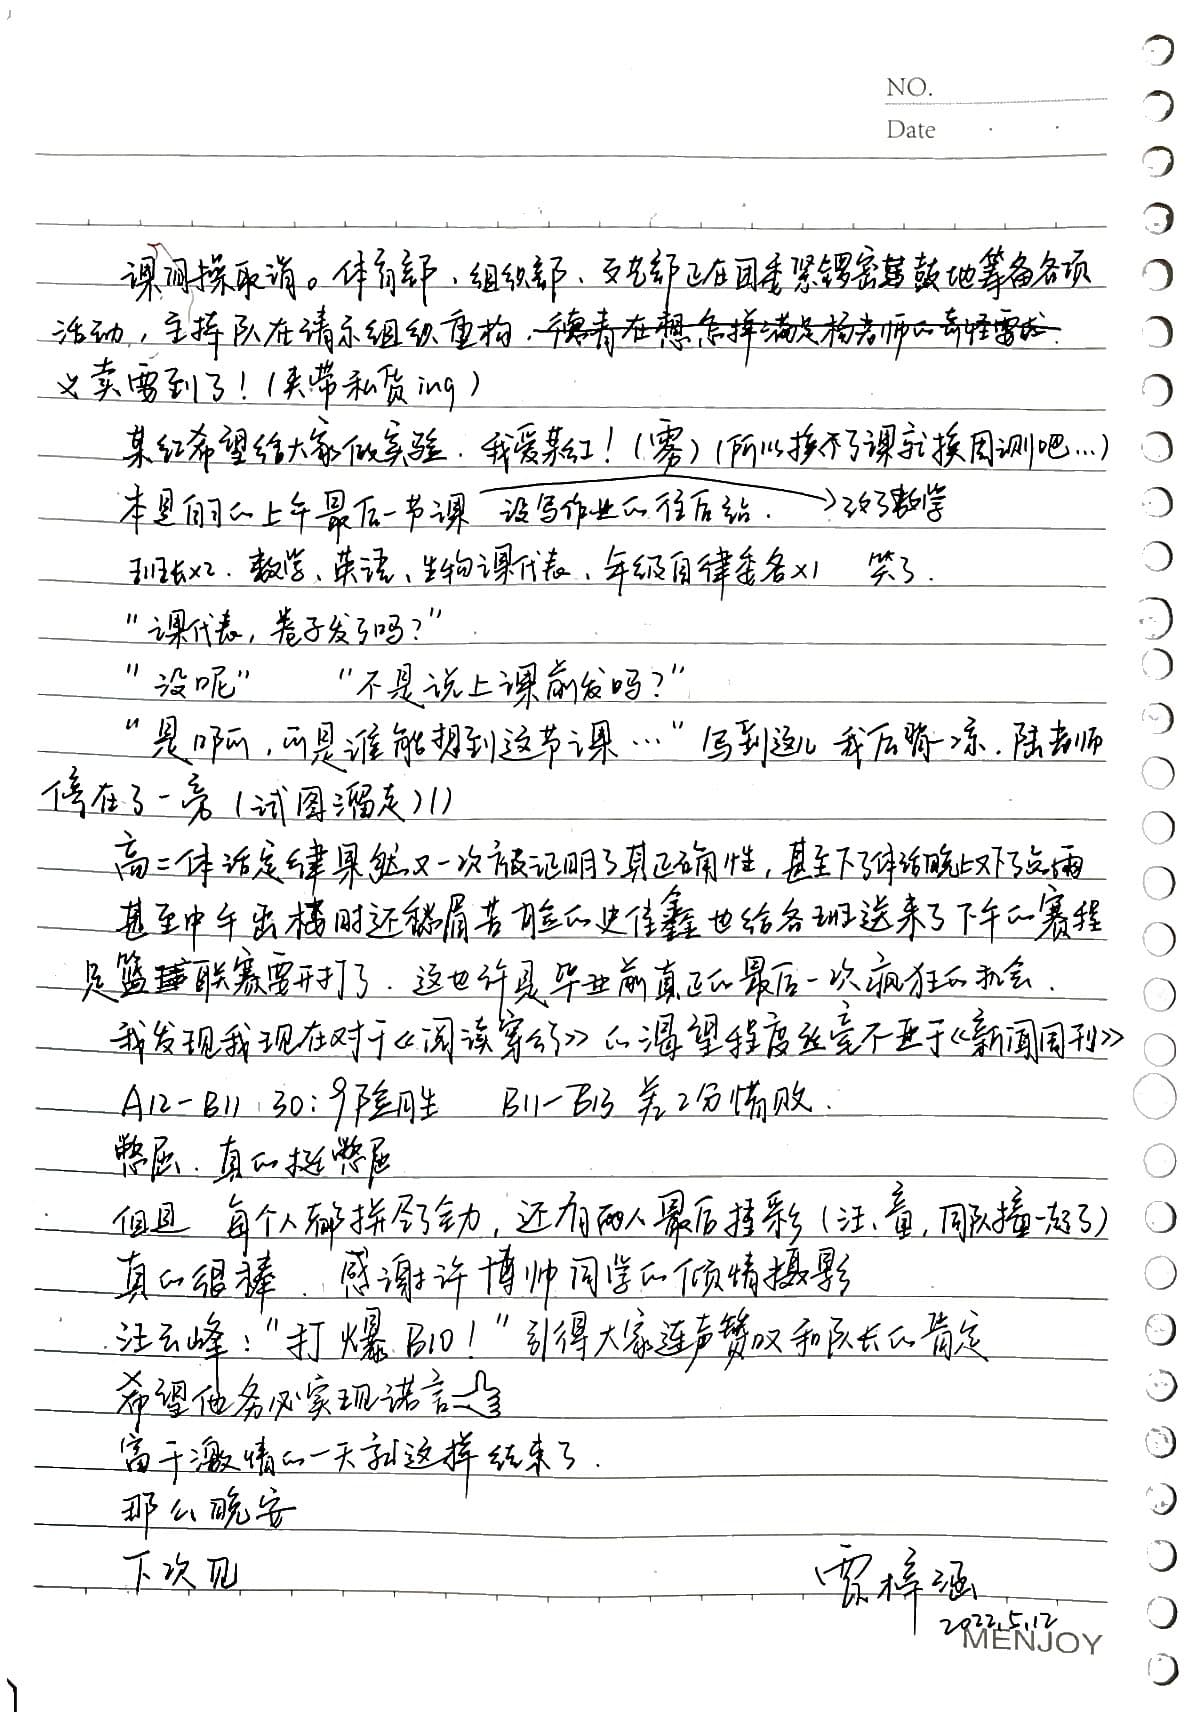 NO.
Date
课间操取消。体育部、组织部、文艺部正在团委紧锣密鼓地筹备各项
活动，主持队在请示组织重构，德育在想怎样满足杨老师的奇怪需求
义卖要到了！（夹带私货ing）
某红希望给大家做实验．我爱某红！（雾）（所以换不了课就换周测吧…）
本是自习的上午最后一节课 没写作业的往后给． →改了数学
班长x2．数学、英语、生物课代表、年级自律委各x1 笑了．
“课代表，卷子发了吗？”
“没呢” “不是说上课前发吗？”
“是啊，可是谁能想到这节课…”写到这儿我后背一凉．陆老师
停在了一旁（试图溜走））
高二体活定律果然又一次被证明了其正确性，甚至下了体活晚上又下了点雨
甚至中午出楼时还愁眉苦脸的史佳鑫也给各班送来了下午的赛程
是篮球联赛要开打了．这也许是毕业前真正的最后一次疯狂的机会．
我发现我现在对于《阅读穿行》的渴望程度丝毫不亚于《新闻周刊》
A12-B11 30:9险胜 B11-B13 差2分惜败．
憋屈．真的挺憋屈
但是 每个人都拼尽了全力，还有两人最后挂彩（汪、童，同队撞一起了）
真的很棒．感谢许博帅同学的倾情摄影
汪云峰：“打爆B10！”引得大家连声赞叹和队长的肯定
希望他务必实现诺言
富于激情的一天就这样结束了．
那么晚安
下次见
贾梓涵
2022.5.12
MENJOY